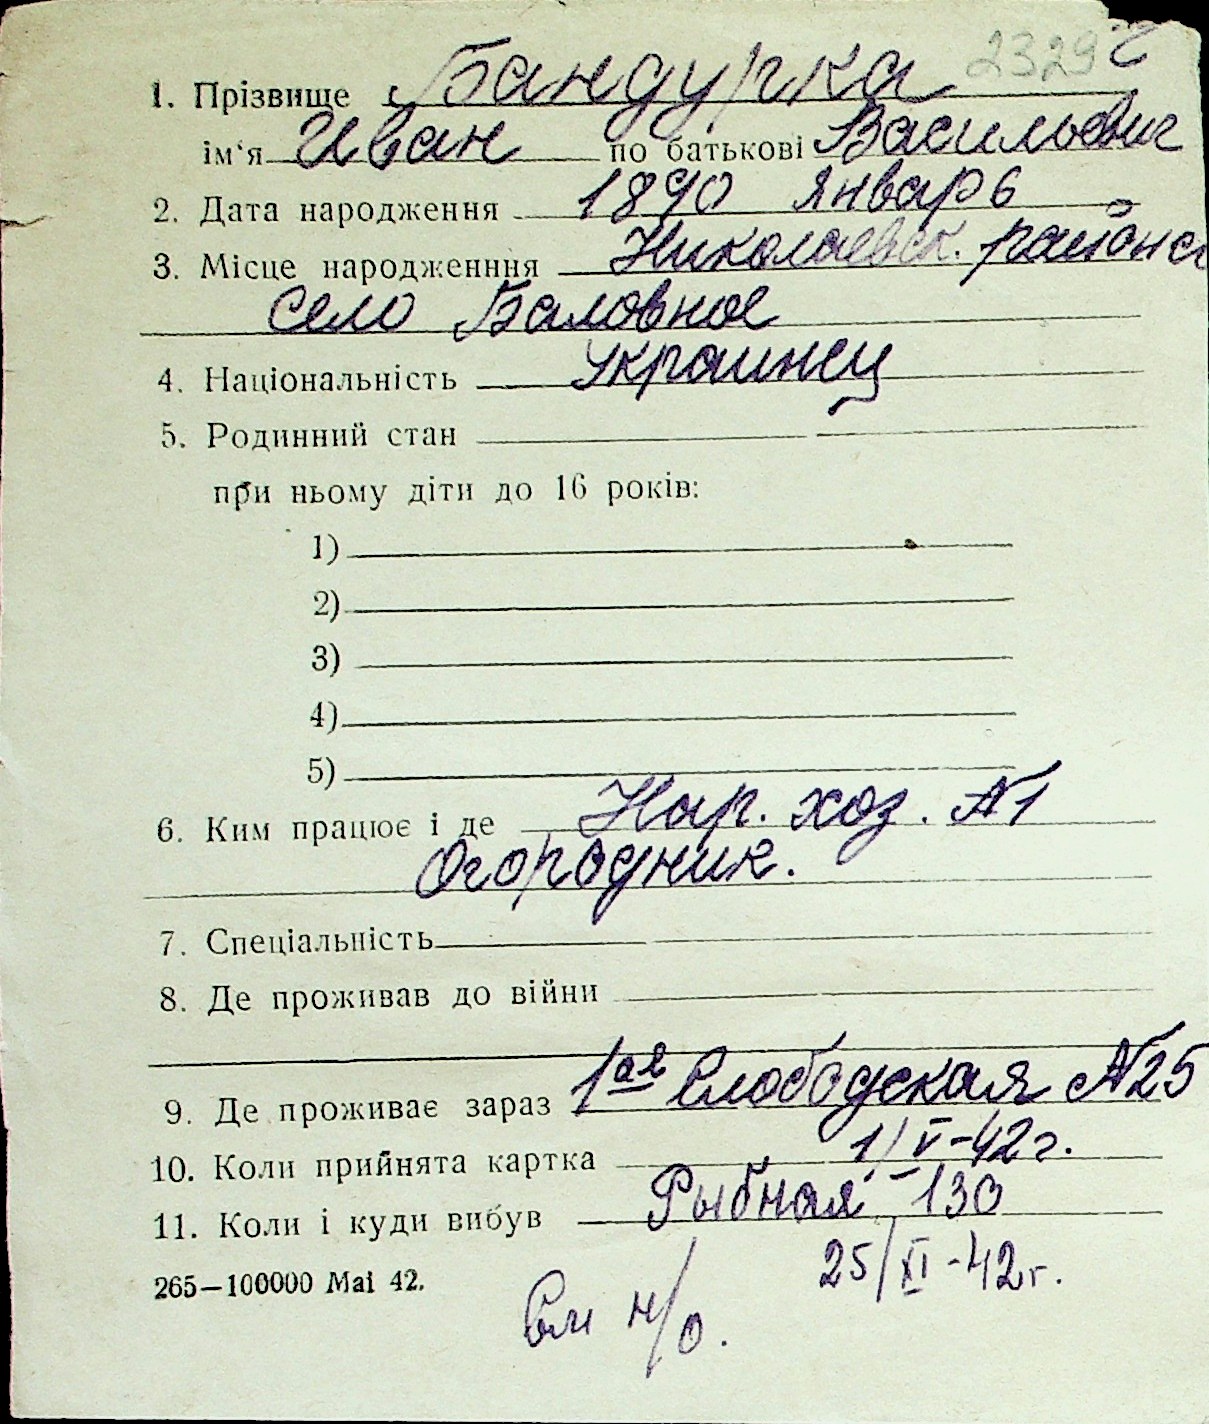 2329
1. Прізвище Бандурка
ім'я Иван по батькові Васильевич
2. Дата народження 1890 январь
3. Місце народженння Николаевск. района
село Баловное
4. Національність украинец
5. Родинний стан
при ньому діти до 16 років:
1)
2)
3)
4)
5)
6. Ким працює і де Нар. хоз. №1
Огородник.
7. Спеціальність
8. Де проживав до війни
9. Де проживає зараз 1ая Слободская №25
10. Коли прийнята картка 1/V-42г.
11. Коли і куди вибув Рыбная 130
265—100000 Mai 42. 25/XI-42г.
см н/о.